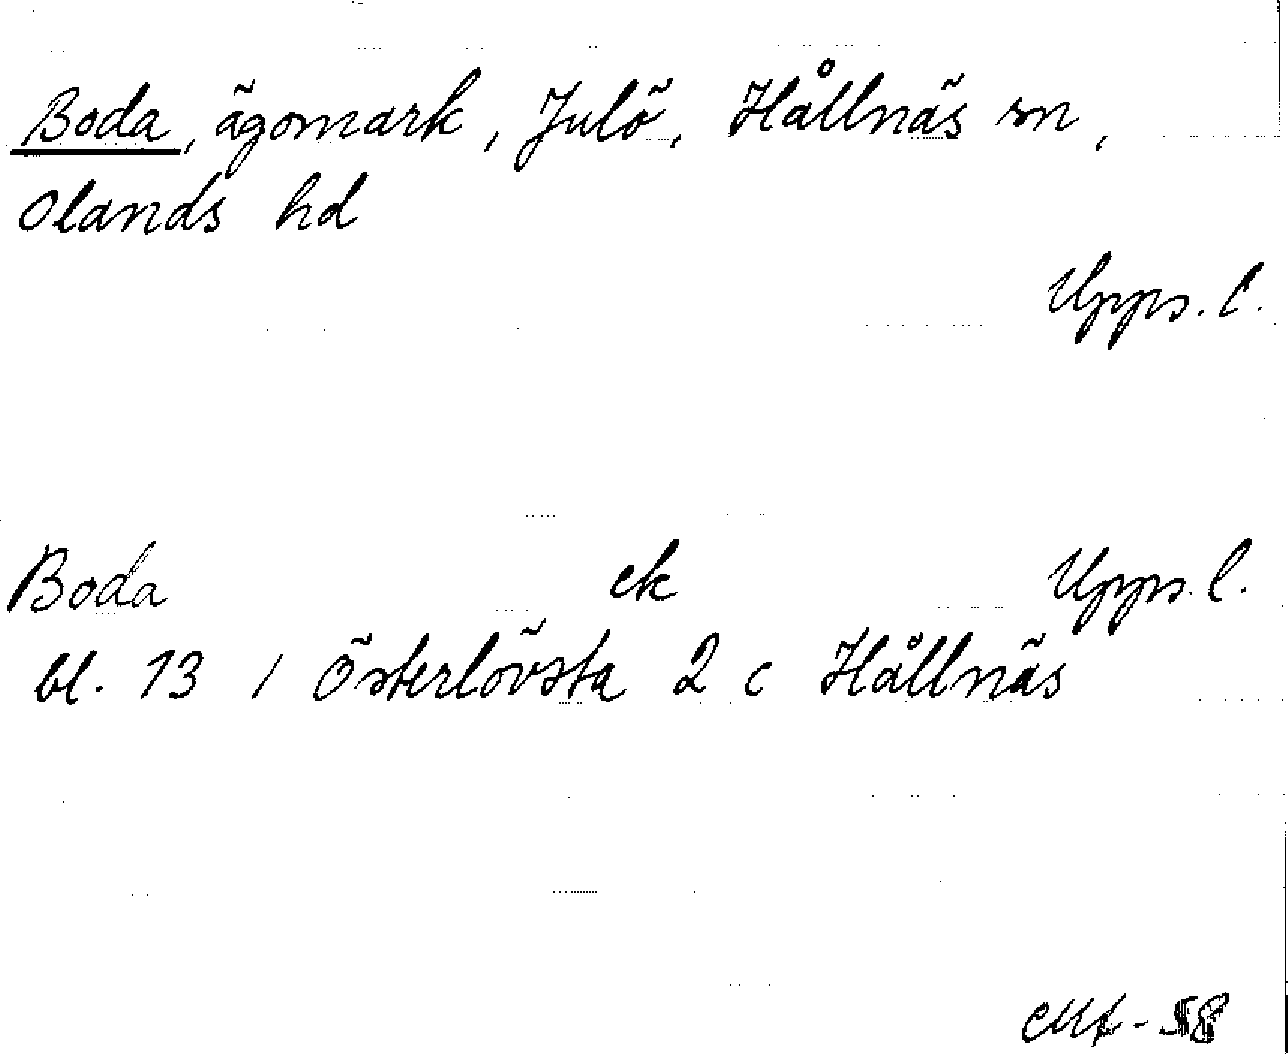 Boda, ägomark, Julö, Hållnäs sn,
Olands hd
Upps. l.
Boda ek Upps. l.
bl. 13 / Österlövsta 2 c Hållnäs